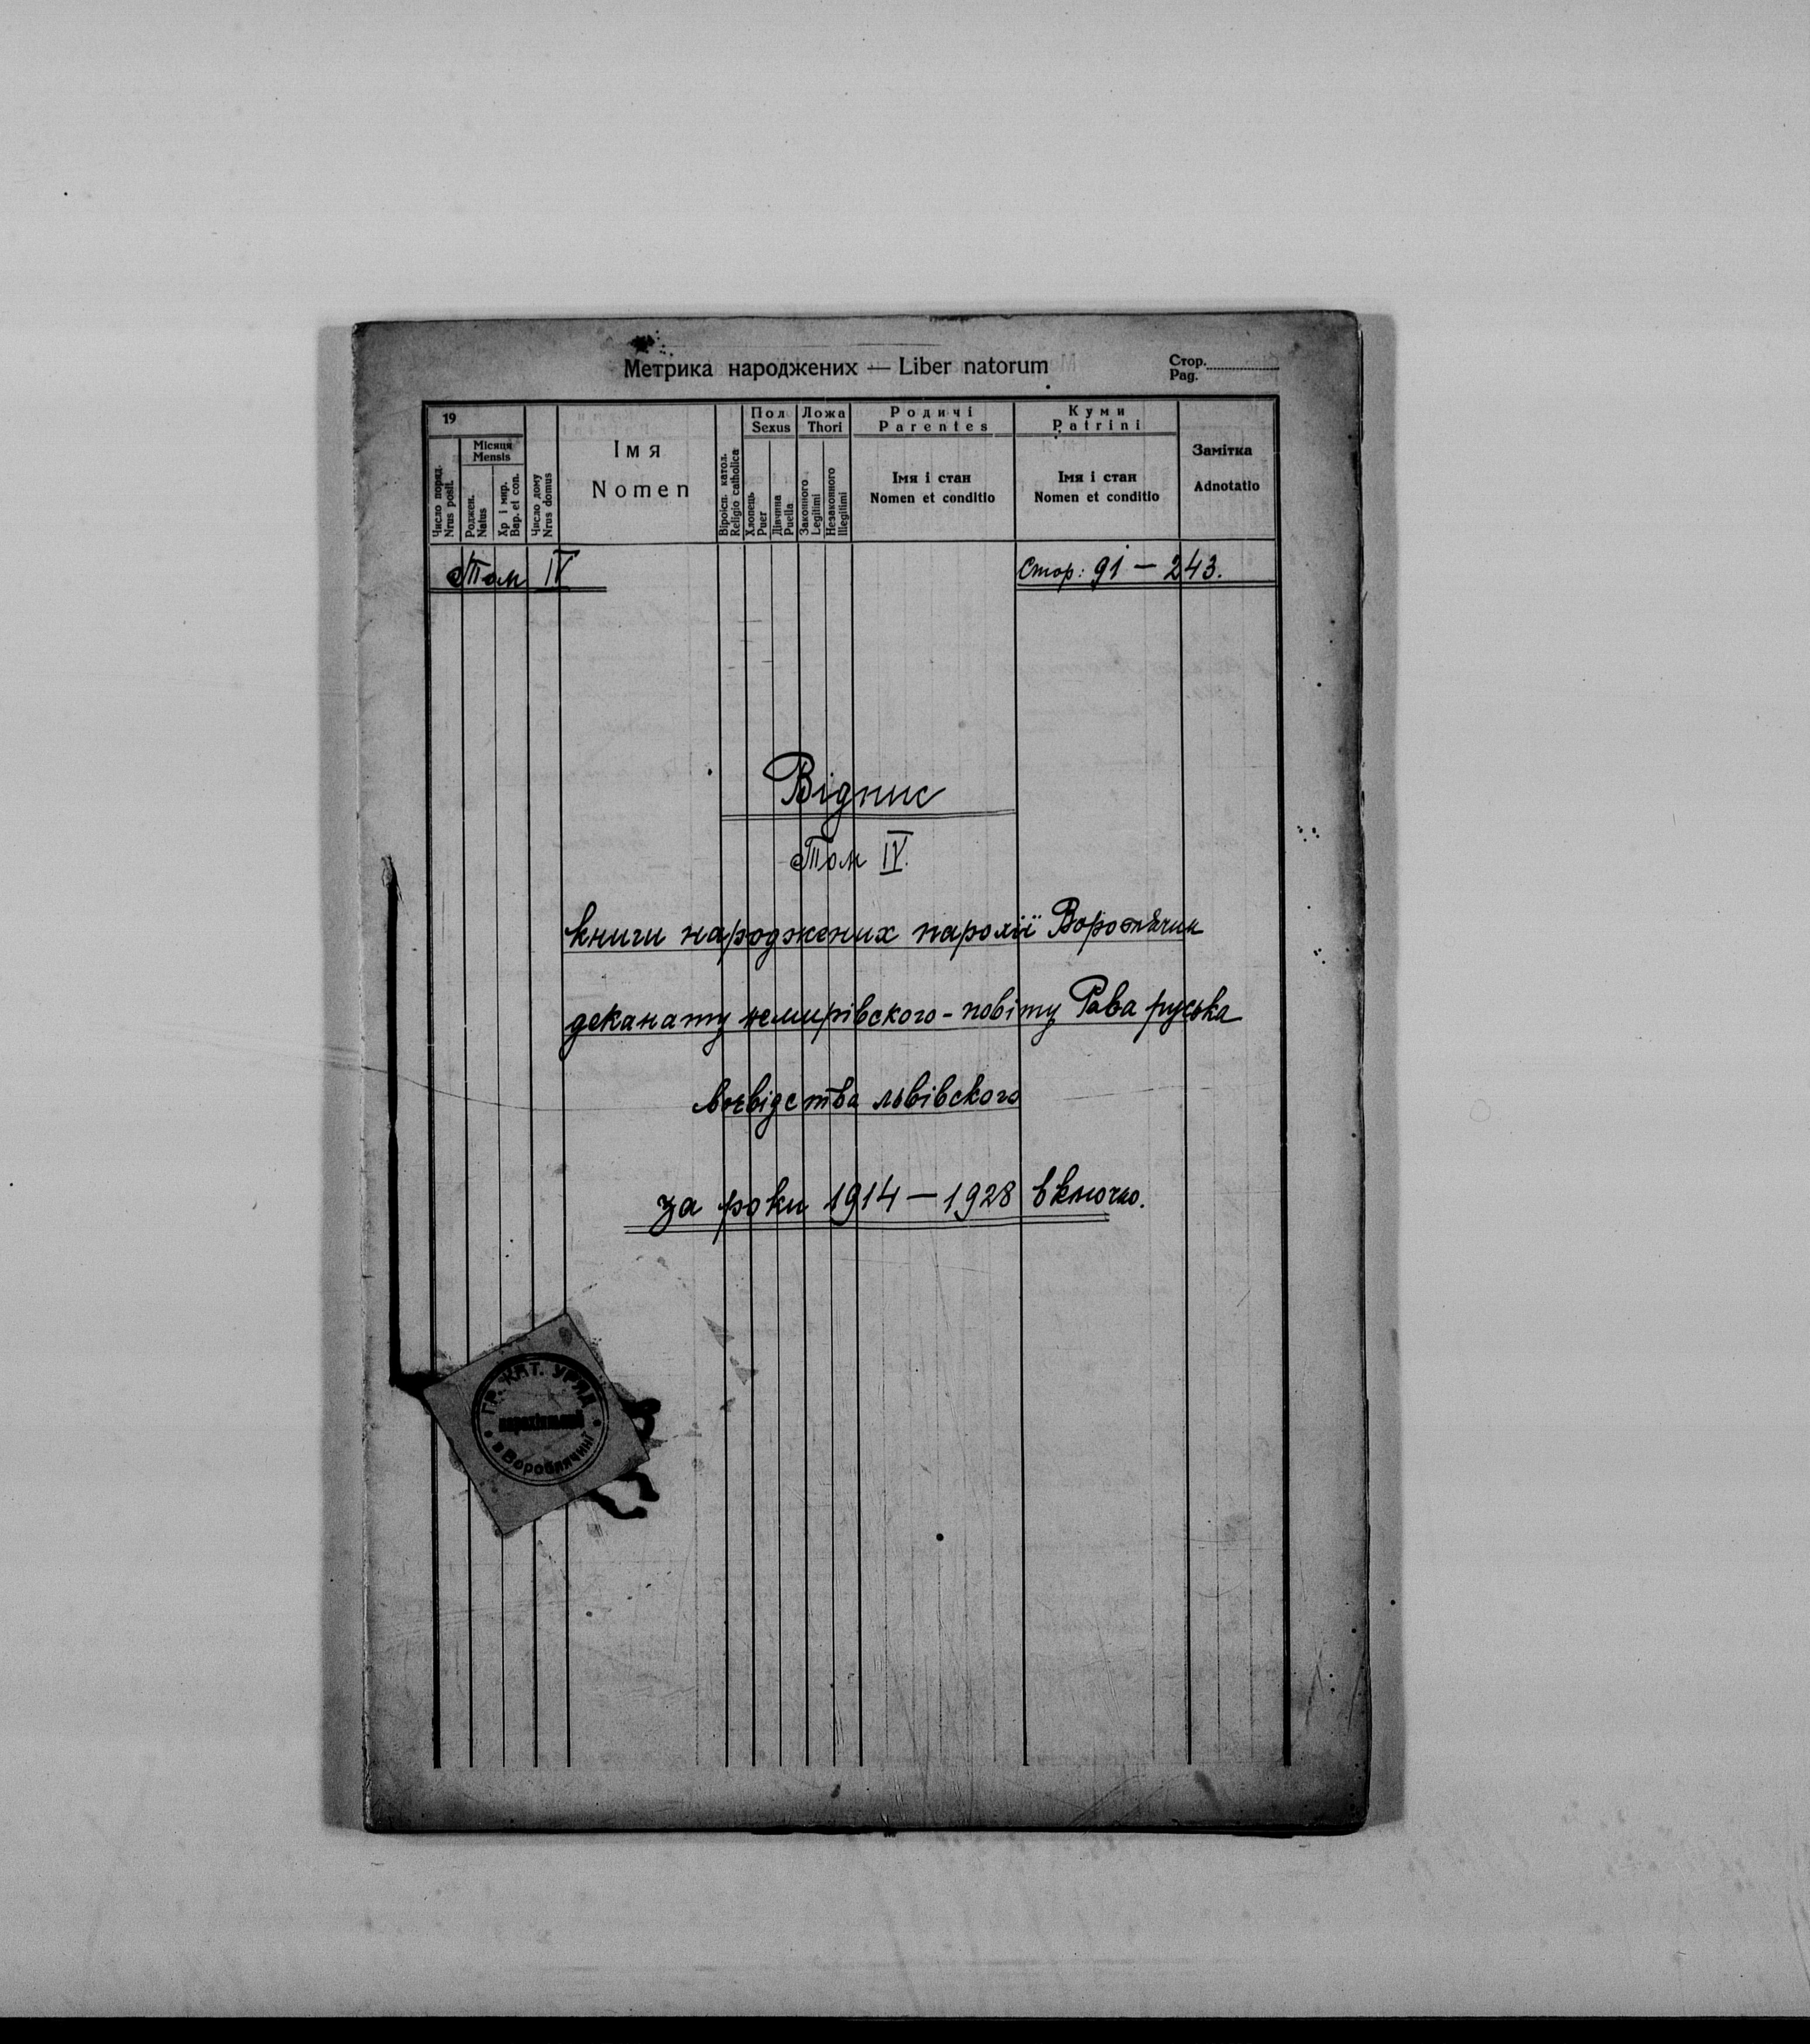 Метрика народжених — Liber natorum
Стор.
Pag.
19
Місяця
Mensis
Число поряд.
Nrus posit.
Роджен.
Natus
Хр і мир.
Bap. et con.
Число дому
Nrus domus
Імя
Nomen
Віроісп. катол.
Religio catholica
Пол
Sexus
Хлопець
Puer
Дівчина
Puella
Ложа
Thori
Законного
Legitimi
Незаконного
Illegitimi
Родичі
Parentes
Імя і стан
Nomen et conditio
Куми
Patrini
Імя і стан
Nomen et conditio
Замітка
Adnotatio
Том IV
Стор: 91 — 243.
Відпис
Том IV.
книги народжених парохії
деканату немирівского - повіту Рава руська
воєвідства львівского
за роки 1914 — 1928 включно.
ГР. КАТ. УРЯД
парохіяльний
в Вороблячині